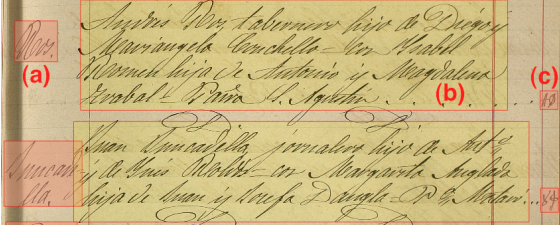 Ros.
(a)
Andrés Ros tabernero hijo de Diego y
Mariangela Conchello = con Isabel
Romeu hija de Antonio y Magdalena
= Parra S. Agustin
(b)
(c)
Juncadella.
Juan Juncadella, jornalero hijo de Ant.º
y de Inés = con Margarita Anglada
hija de Juan y Josefa = P. Mataró